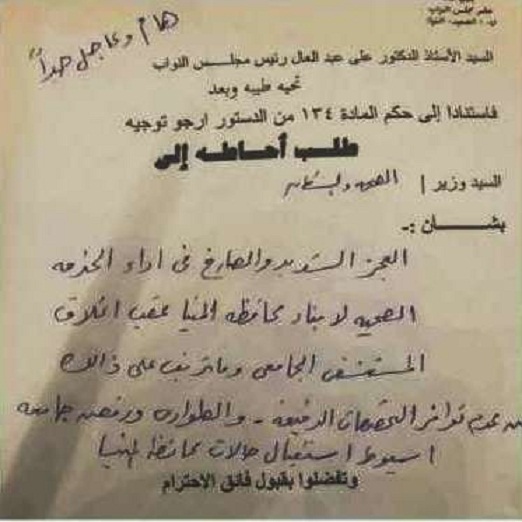 هام وعاجل جداً
السيد الأستاذ الدكتور على عبد العال رئيس مجلس النواب
تحيه طيبه وبعد
فاستنادا إلى حكم المادة ١٣٤ من الدستور ارجو توجيه
طلب أحاطه إلى
السيد وزير / الصحه والسكان
بشان :-
العجز الشديد والصارخ فى اداء الخدمه
الصحيه لابناء محافظه المنيا عقب اغلاق
المستشفى الجامعى وماترتب على ذالك
من عدم توافر التخصصات الدقيقه - والطوارئ ورفض جامعه
اسيوط استقبال حالات محافظه المنيا
وتفضلوا بقبول فائق الاحترام